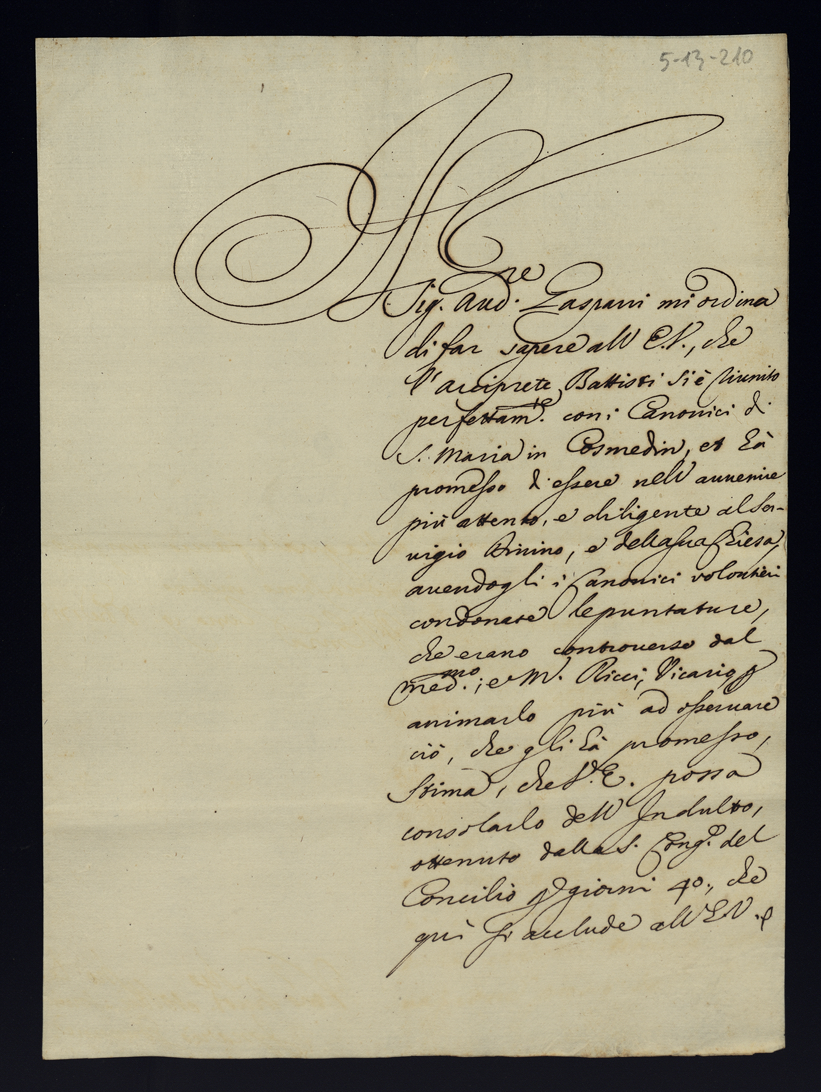 5-13-210
Sig.re Aud. Gasparri mi ordina
di far sapere all'E.V., che
l'Arciprete Battisti si è riunito
perfettam.te con i Canonici di
S. Maria in Cosmedin, et hà
promesso d'essere nell'avvenire
più attento, e diligente al ser-
vigio Divino, e della sua Chiesa,
avendogli i Canonici volontieri
condonate le puntature,
che erano controverse dal
med.mo; e M. Ricci, Vicario p
animarlo più ad osservare
ciò, che gli hà promesso,
stima, che V.E. possa
consolarlo dell'Indulto,
ottenuto dalla S. Cong.e del
Concilio p giorni 40., che
qui si acclude all'E.V. e